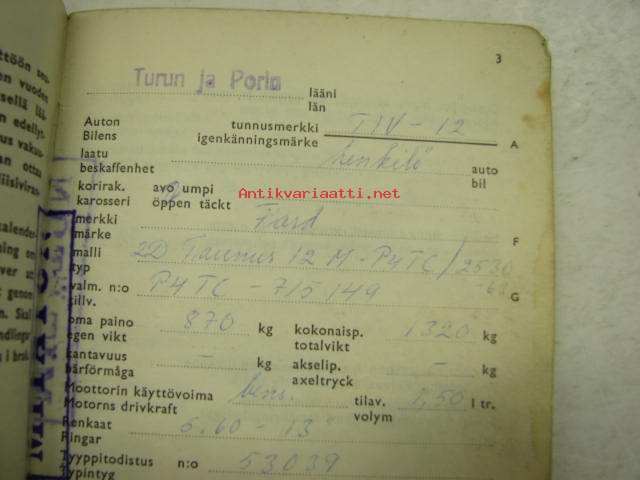 ttöön
en vuoden
sellä
n edellyt.
us vakuu-
an ottaa
liisiviran-
alende-
ning en
ver ut
genom
n. Skal
ndlings
a i bruk
3
Turun ja Porin lääni
län
Auton tunnusmerkki TIV-12 A
Bilens igenkänningsmärke
laatu henkilö auto
beskaffenhet bil
korirak. avo umpi
karosseri öppen täckt
Antikvariaatti.net
merkki Ford F
märke
malli 2D Taunus 12 M-P4TC/
typ
valm. n:o P4TC - 715149 G
tillv.
oma paino 870 kg kokonaisp. 1320 kg
egen vikt totalvikt
kantavuus - kg akselip. - kg
bärförmåga axeltryck
Moottorin käyttövoima bens. tilav. 1,50 l tr.
Motorns drivkraft volym
Renkaat 5.60-13"
Ringar
Tyyppitodistus n:o 53039
Typintyg